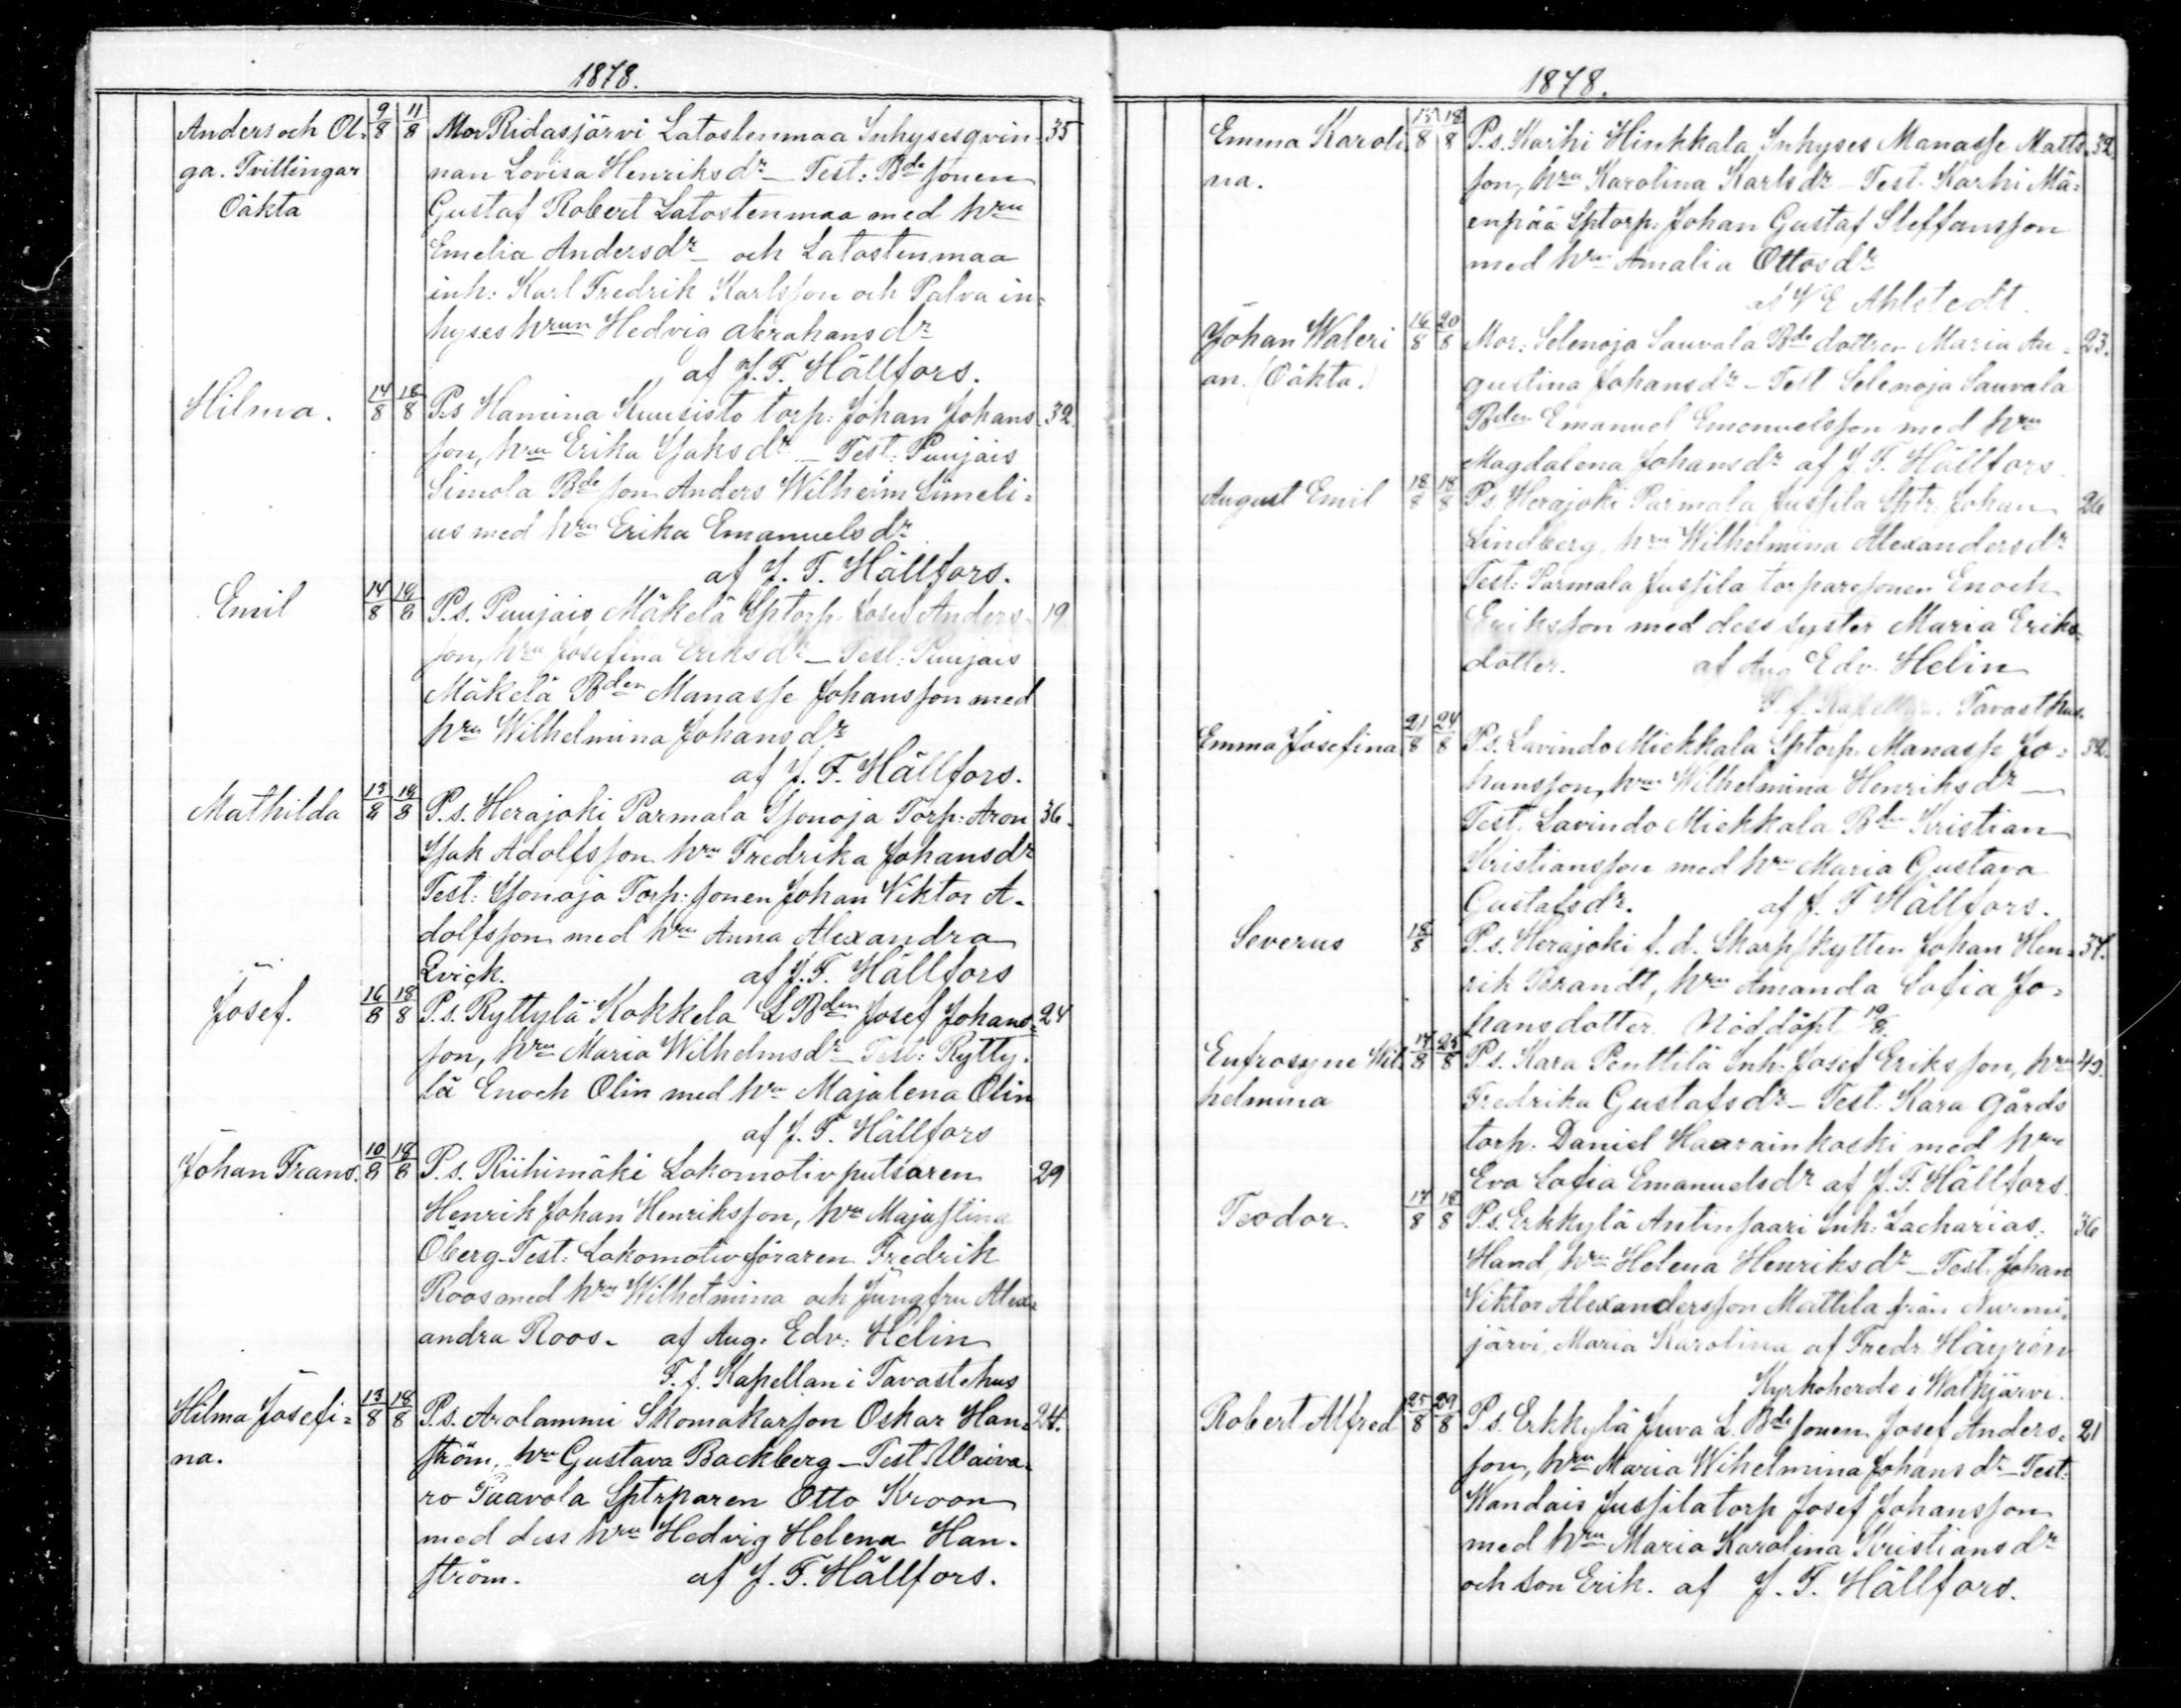 1878.
Anders och Ol= 9/8 11/8 Mor Ridasjärvi Latostenmaa Inhysesqvin= 35
ga. Tvillingar nan Lovisa Henriksdr – Test: Bde sonen
Oäkta Gustaf Robert Latostenmaa med hru
Emelia Andersdr och Latostenmaa
inh: Karl Fredrik Karlsson och Palva in=
hyses hrun Hedvig Abrahamsdr
af J. F. Hällfors.
Hilma. 14/8 18/8 P.s Hamina Kuusisto torp: Johan Johans= 32
son, hru Erika Isaksdr – Test: Puujais
Simola Bde son Anders Wilhelm Simeli=
us med hru Erika Emanuelsdr
af J. F. Hällfors.
Emil 14/8 18/8 P.s. Puujais Mäkelä Sptorp. Josef Anders= 19
son, hru Josefina Eriksdr – Test: Puujais
Mäkelä Bden Manasse Johansson med
hru Wilhelmina Johansdr
af J. F. Hällfors.
Mathilda 13/8 18/8 P.s. Herajoki Parmala Isonoja Torp: Aron 36.
Isak Adolfsson hru Fredrika Johansdr
Test: Isonoja Torp: sonen Johan Viktor A=
dolfsson med hru Anna Alexandra
Qvick. af J. F. Hällfors
Josef. 16/8 18/8 P.s. Ryttylä Kokkela L Bden Josef Johans= 24
son, hru Maria Wilhelmsdr – Test: Rytty=
lä Enoch Olin med hru Majalena Olin
af J. F. Hällfors
Johan Frans. 10/8 18/8 P.s. Riihimäki Lokomotivputsaren 29
Henrik Johan Henriksson, hru Majastina
Öberg – Test: Lokomotivföraren Fredrik
Roos med hru Wilhelmina och Jungfru Alex=
andra Roos. af Aug: Edv: Helin
T. f. Kapellan i Tavastehus
Hilma Josefi= 13/8 18/8 P.s. Arolammi Skomakarson Oskar Han= 24.
na. ström, hru Gustava Backberg – Test Waiva=
ro Paavola Sptrparen Otto Kroon
med dess hru Hedvig Helena Han=
ström. af J. F. Hällfors.
1878.
Emma Karoli 15/8 18/8 P.s. Karhi Hinkkala Inhyses Manasse Matts 32.
na. son, hru Karolina Karlsdr – Test. Karhi Mä=
enpää Sptorp: Johan Gustaf Steffansson
med hru Amalia Ottosdr
af V E Ahlstedt.
Johan Waleri 16/8 20/8 Mor: Selenoja Sauvala Bde dottren Maria Au= 23.
an. (Oäkta.) gustina Johansdr – Test Selenoja Sauvala
Bden Emanuel Emanuelsson med hru
Magdalena Johansdr af J. F. Hällfors.
August Emil 18/8 18/8 P.s. Herajoki Parmala Jussila Sptr: Johan 26
Lindberg, hru Wilhelmina Alexandersdr
Test: Parmala Jussila torparesonen Enoch
Eriksson med dess syster Maria Eriks=
dotter. af Aug Edv. Helin
T. f. Kapellan. Tavasthus.
Emma Josefina 21/8 24/8 P.s. Lavindo Miekkala Sptorp. Manasse Jo= 32.
hansson, hru Wilhelmina Henriksdr –
Test. Lavindo Miekkala Bde Kristian
Kristiansson med hru Maria Gustava
Gustafsdr. af J. F Hällfors.
Severus 18/8 P.s. Herajoki f. d. Skarpskytten Johan Hen= 34.
rik Brandt, hru Amanda Sofia Jo=
hansdotter. Nöddöpt 19/8.
Eufrosyne Wil 17/8 25/8 P.s. Kara Penttilä Inh: Josef Eriksson, hru 40.
helmina Fredrika Gustafsdr – Test: Kara gårds
torp. Daniel Haarainkoski med hru
Eva Sofia Emanuelsdr af J. F. Hällfors.
Teodor. 17/8 18/8 P.s. Erkkylä Antinsaari Inh: Zacharias 36
Hand, hru Helena Henriksdr – Test. Johan
Viktor Alexandersson Mattila från Nurmi=
järvi, Maria Karolina af Fredr. Häyrén
Kyrkoherde i Walkjärvi.
Robert Alfred 25/8 29/8 P.s. Erkkylä Juva L. Bde sonen Josef Anders= 21
son, hru Maria Wihelmina Johansdr – Test:
Wandais Jussila torp Josef Johansson
med hru Maria Karolina Kristiansdr
och son Erik. af J. F. Hällfors.